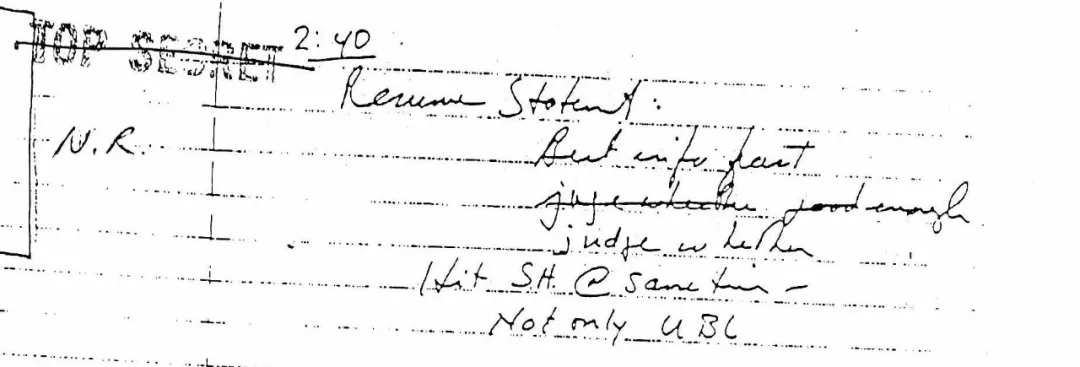 TOP SECRET
2:40
Resume Statement:
N.R.
Best info fast
juge whether good enough
judge whether
Hit S.H. @ same time -
Not only UBL